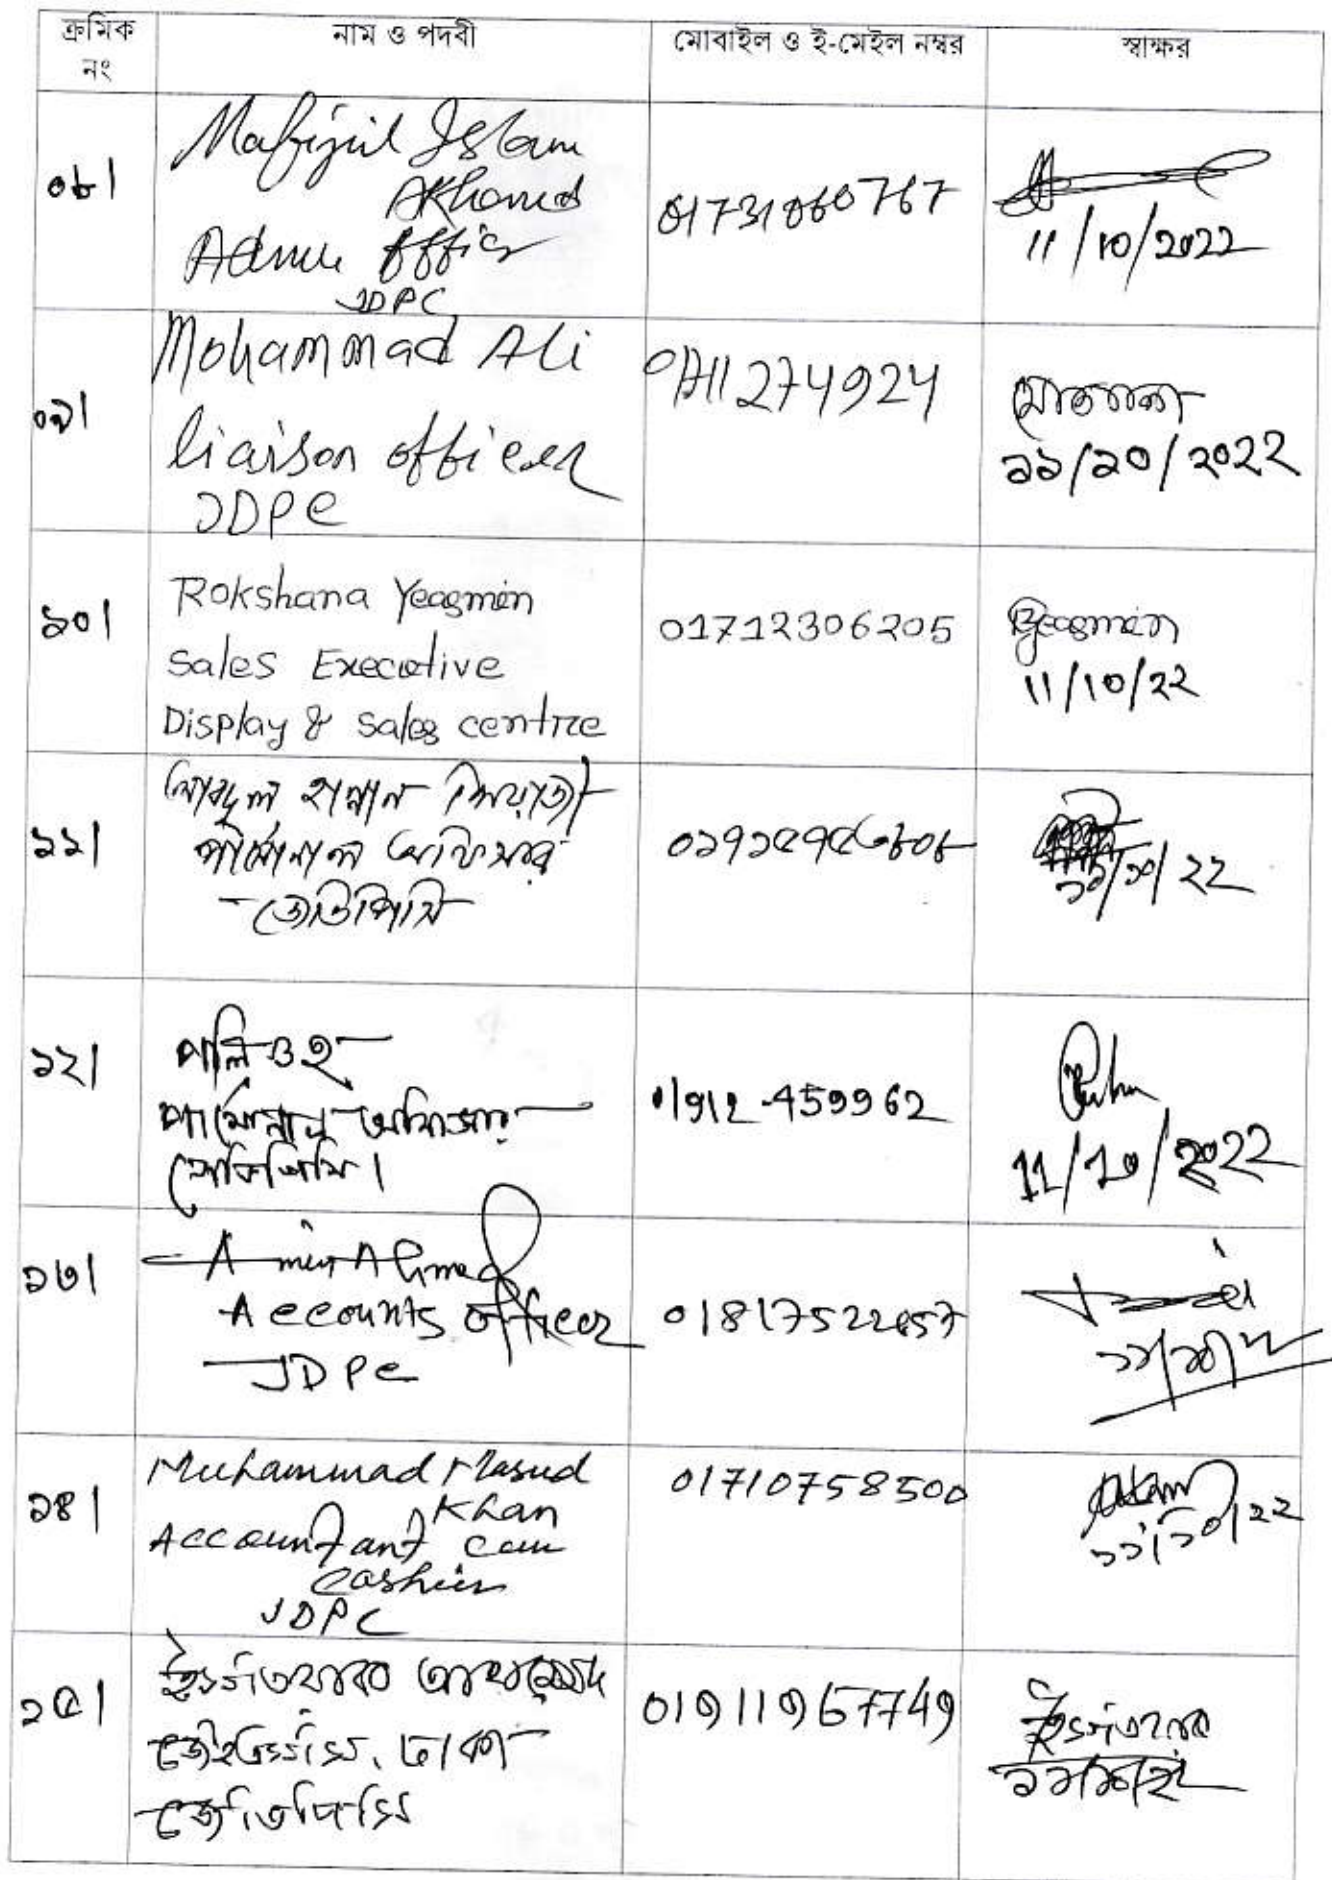 ক্রমিক নং
নাম ও পদবী
মোবাইল ও ই-মেইল নম্বর
স্বাক্ষর
০৮।
Mafizul Islam
Admn Officer
JDPC
01731060767
11/10/2022
০৯।
Mohammad Ali
liaison officer
JDPC
01711274924
১১/১০/২০২২
১০।
Rokshana Yeasmin
Sales Executive
Display & Sales centre
01712306205
Yeasmin
11/10/22
১১।
আবদুল হান্নান
পার্সোনাল অফিসার
জেডিপিসি
১১/১০/২২
১২।
পার্সোনাল অফিসার
জেডিপিসি।
01912-459962
11/10/2022
১৩।
Amin Ahmed
Accounts officer
JDPC
১১/১০/২২
১৪।
Muhammad Masud
Khan
Accountant Cum
Cashier
JDPC
01710758500
১১/১০/২২
১৫।
ইফতিখার আহমেদ
ঢাকা
জেডিপিসি
ইফতিখার